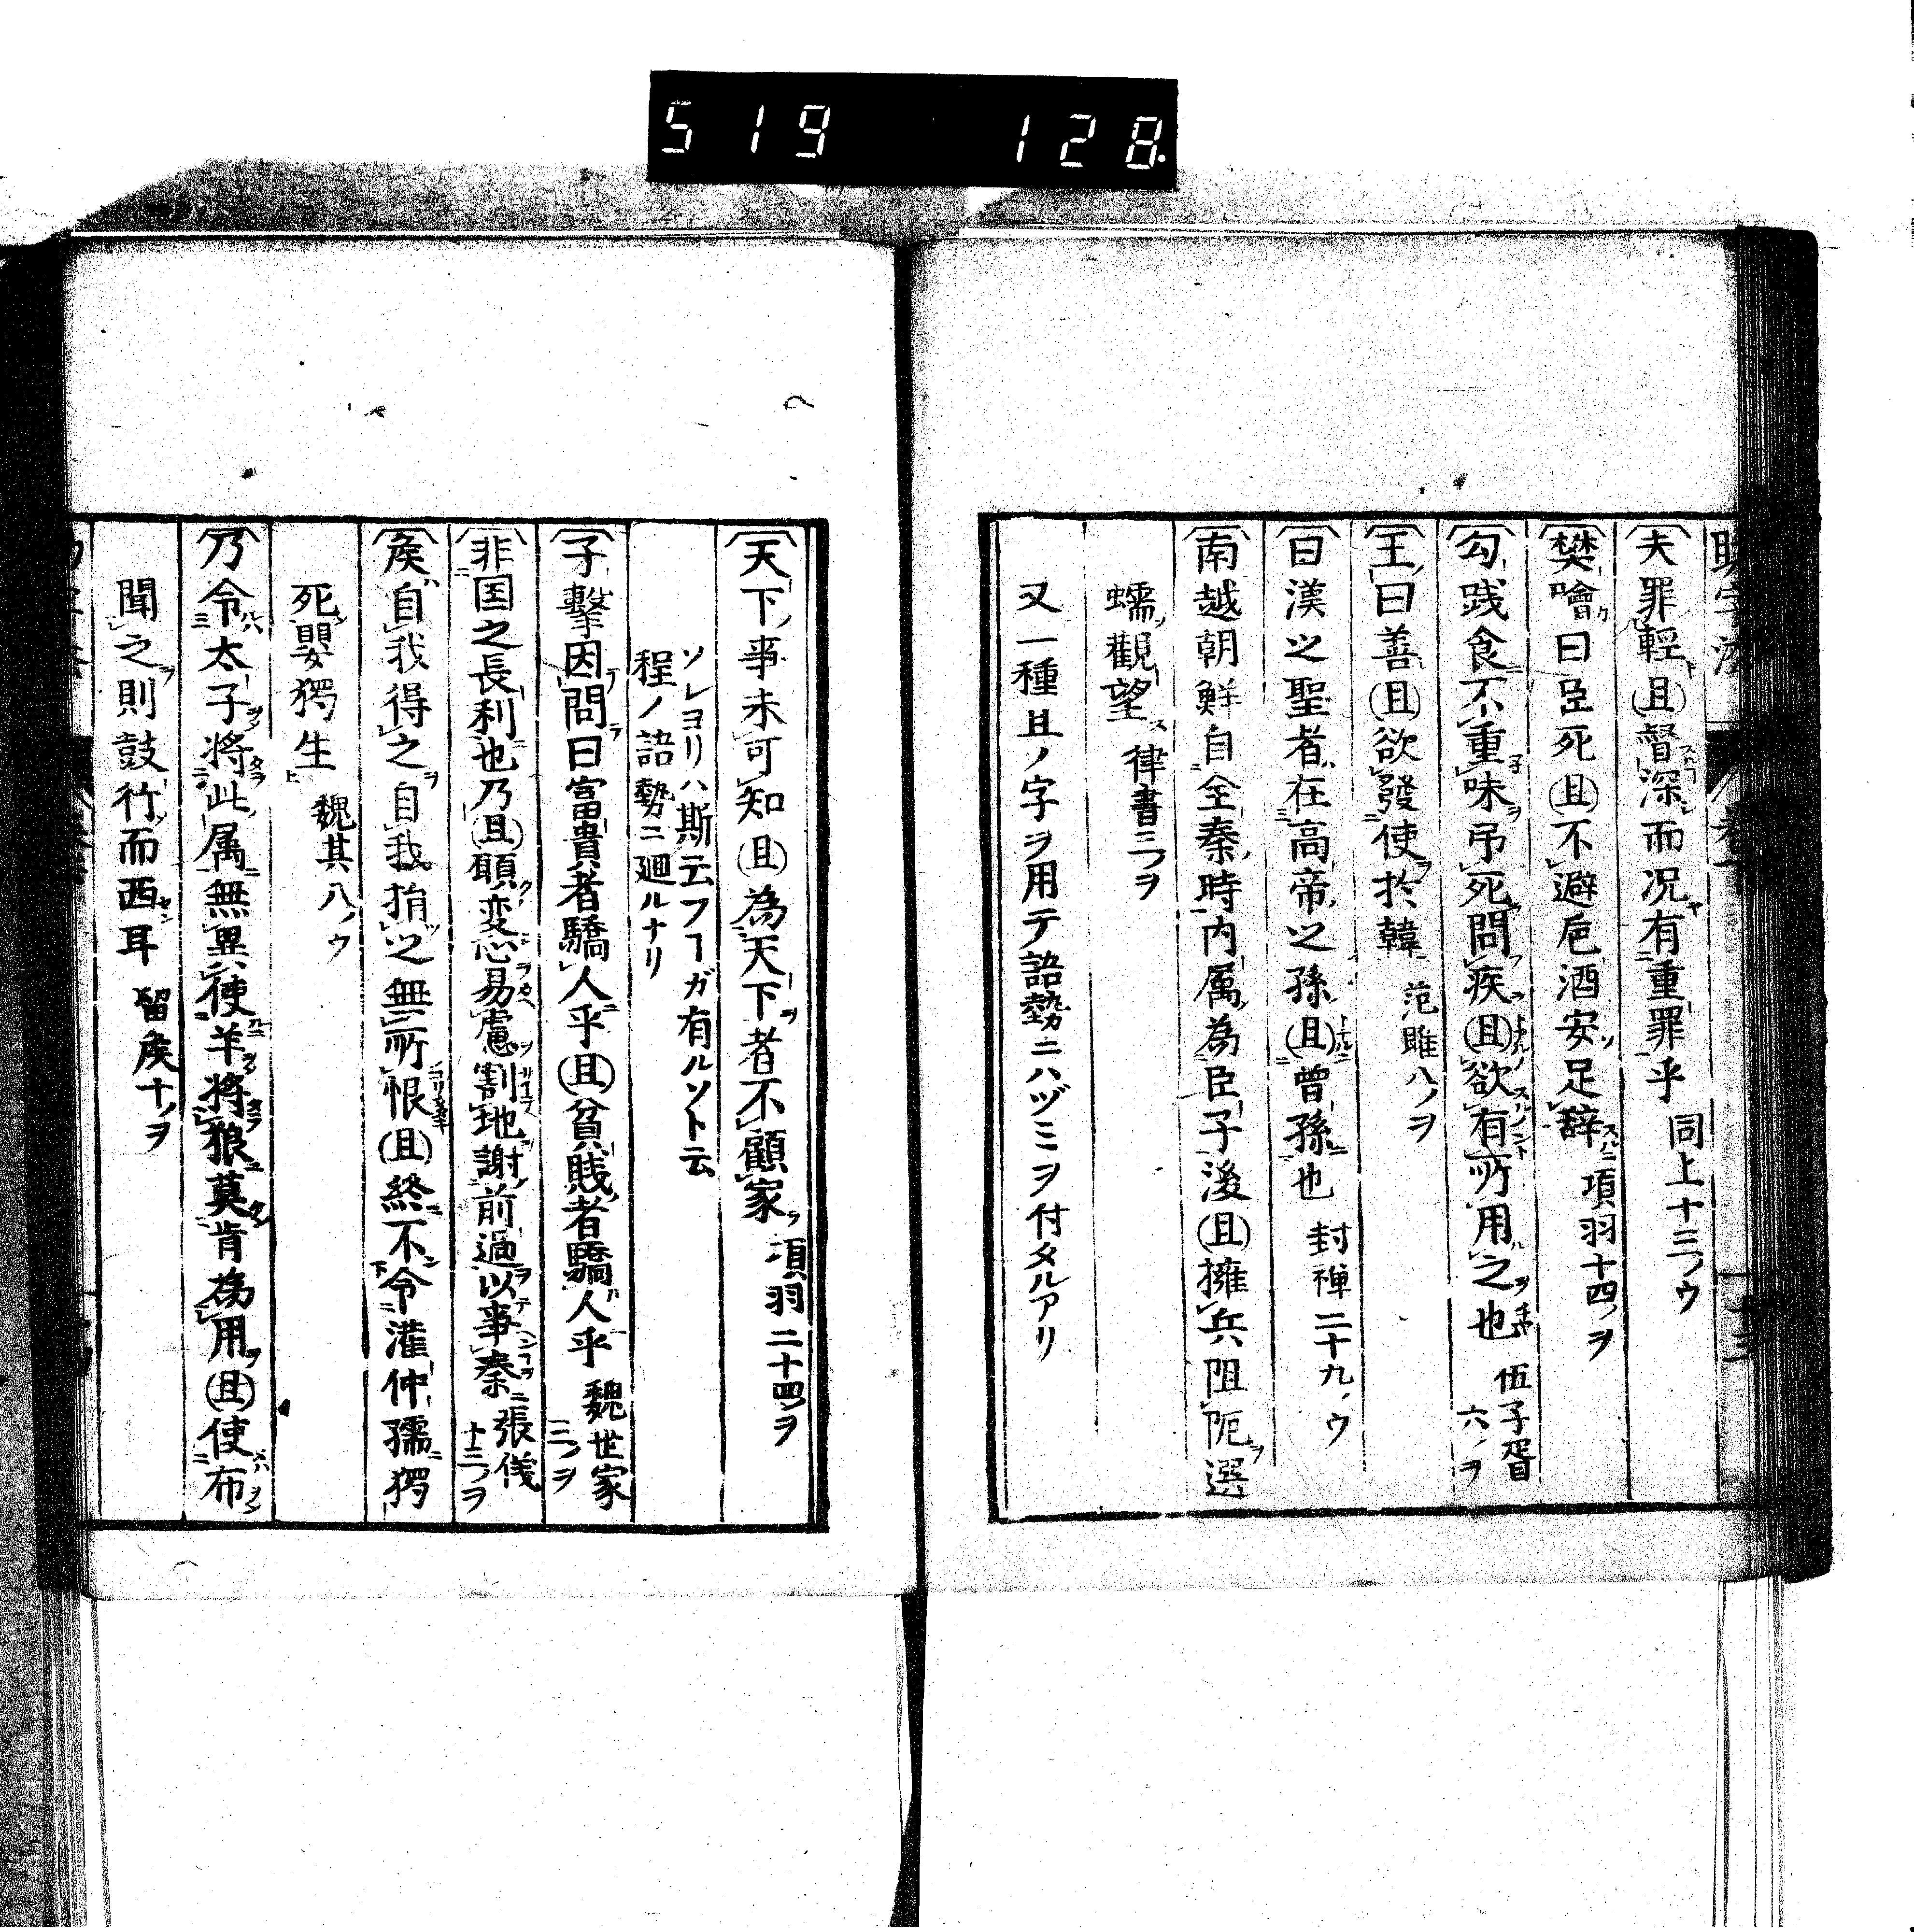 519 128
夫罪輕且督深而况有重罪乎 同上十三ノウ
樊噲曰臣死且不避巵酒安足辞 項羽十四ノヲ
勾践食不重味吊死問疾且欲有所用之也 伍子胥六ノヲ
王曰善且欲發使於韓 范雎八ノヲ
曰漢之聖者在高帝之孫且曾孫也 封禅二十九ノウ
南越朝鮮自全秦時内属為臣子後且擁兵阻阨選
蠕觀望 律書三ノヲ
又一種且ノ字ヲ用テ語勢ニハヅミヲ付タルアリ
天下事未可知且為天下者不顧家 項羽二十四ノヲ
ソレヨリハ斯云フヿガ有ルソト云
程ノ語勢ニ廻ルナリ
子擊因問曰富貴者驕人乎且貧賎者驕人乎 魏世家三ノヲ
非国之長利也乃且願変心易慮割地謝前過以事秦 張儀十三ノヲ
矦自我得之自我捐之無所恨且終不令灌仲孺獨
死嬰獨生 魏其八ノウ
乃令太子将此属無異使羊将狼莫肯為用且使布
聞之則鼓行而西耳 留矦十ノヲ